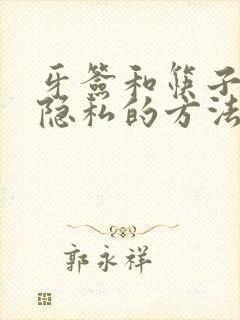 牙签和筷子
隐私的方法
郭永祥